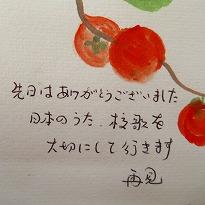 先日はありがとうございました
日本のうた、校歌を
大切にして行きます
再見